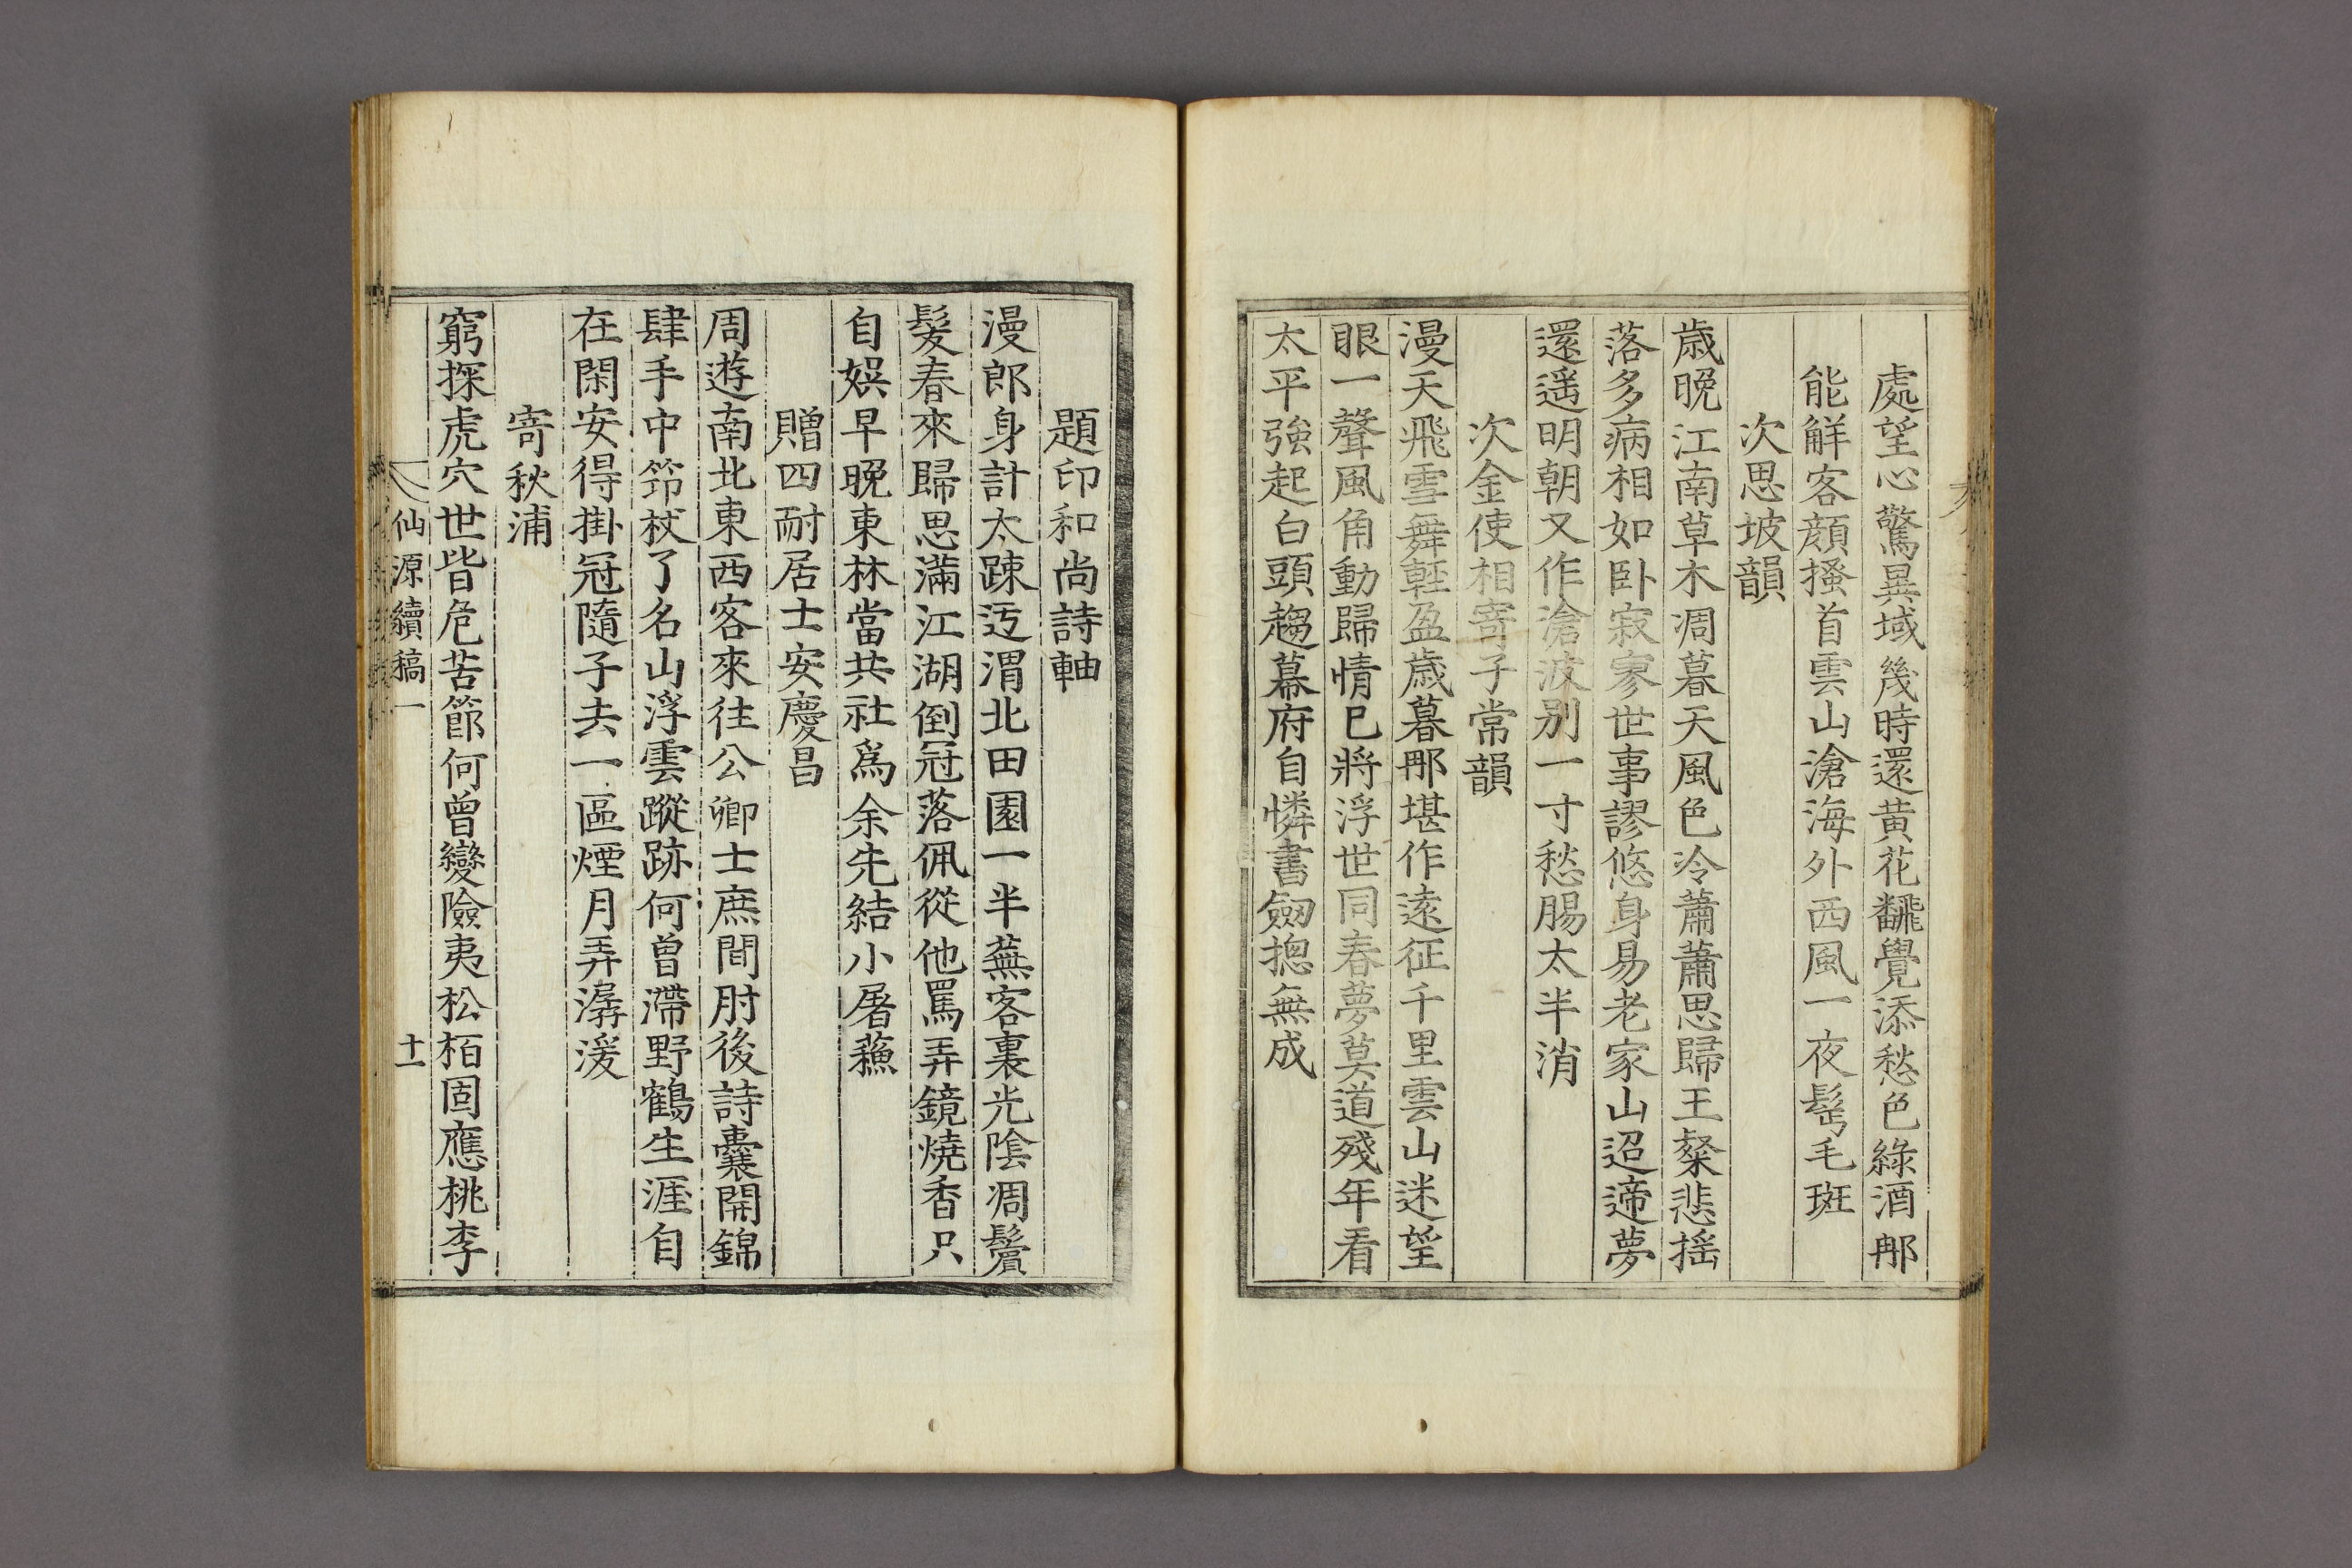 處望心驚異域幾時還黃花飜覺添愁色綠酒那
能觧客顔搔首雲山滄海外西風一夜鬂毛斑
次思坡韻
歲晩江南草木凋暮天風色冷蕭蕭思歸王粲悲搖
落多病相如卧寂寥世事謬悠身易老家山迢遆夢
還遥明朝又作滄波别一寸愁腸太半消
次金使相寄子常韻
漫天飛雪舞輕盈歲暮那堪作遠征千里雲山迷望
眼一聲風角動歸情已將浮世同春夢莫道殘年看
太平強起白頭趨幕府自憐書劒摠無成
題印和尚詩軸
漫郎身計太踈迃渭北田園一半蕪客裏光陰凋鬢
髮春來歸思滿江湖倒冠落佩從他罵弄鏡燒香只
自娛早晩東林當共社爲余先結小屠蘓
贈四耐居士安慶昌
周遊南北東西客來往公卿士庶間肘後詩囊開錦
肆手中筇杖了名山浮雲蹤跡何曽滯野鶴生涯自
在閑安得掛冠隨子去一區煙月弄潺湲
寄秋浦
窮探虎穴世皆危苦節何曽變險夷松栢固應桃李
仙源續稿一 十一